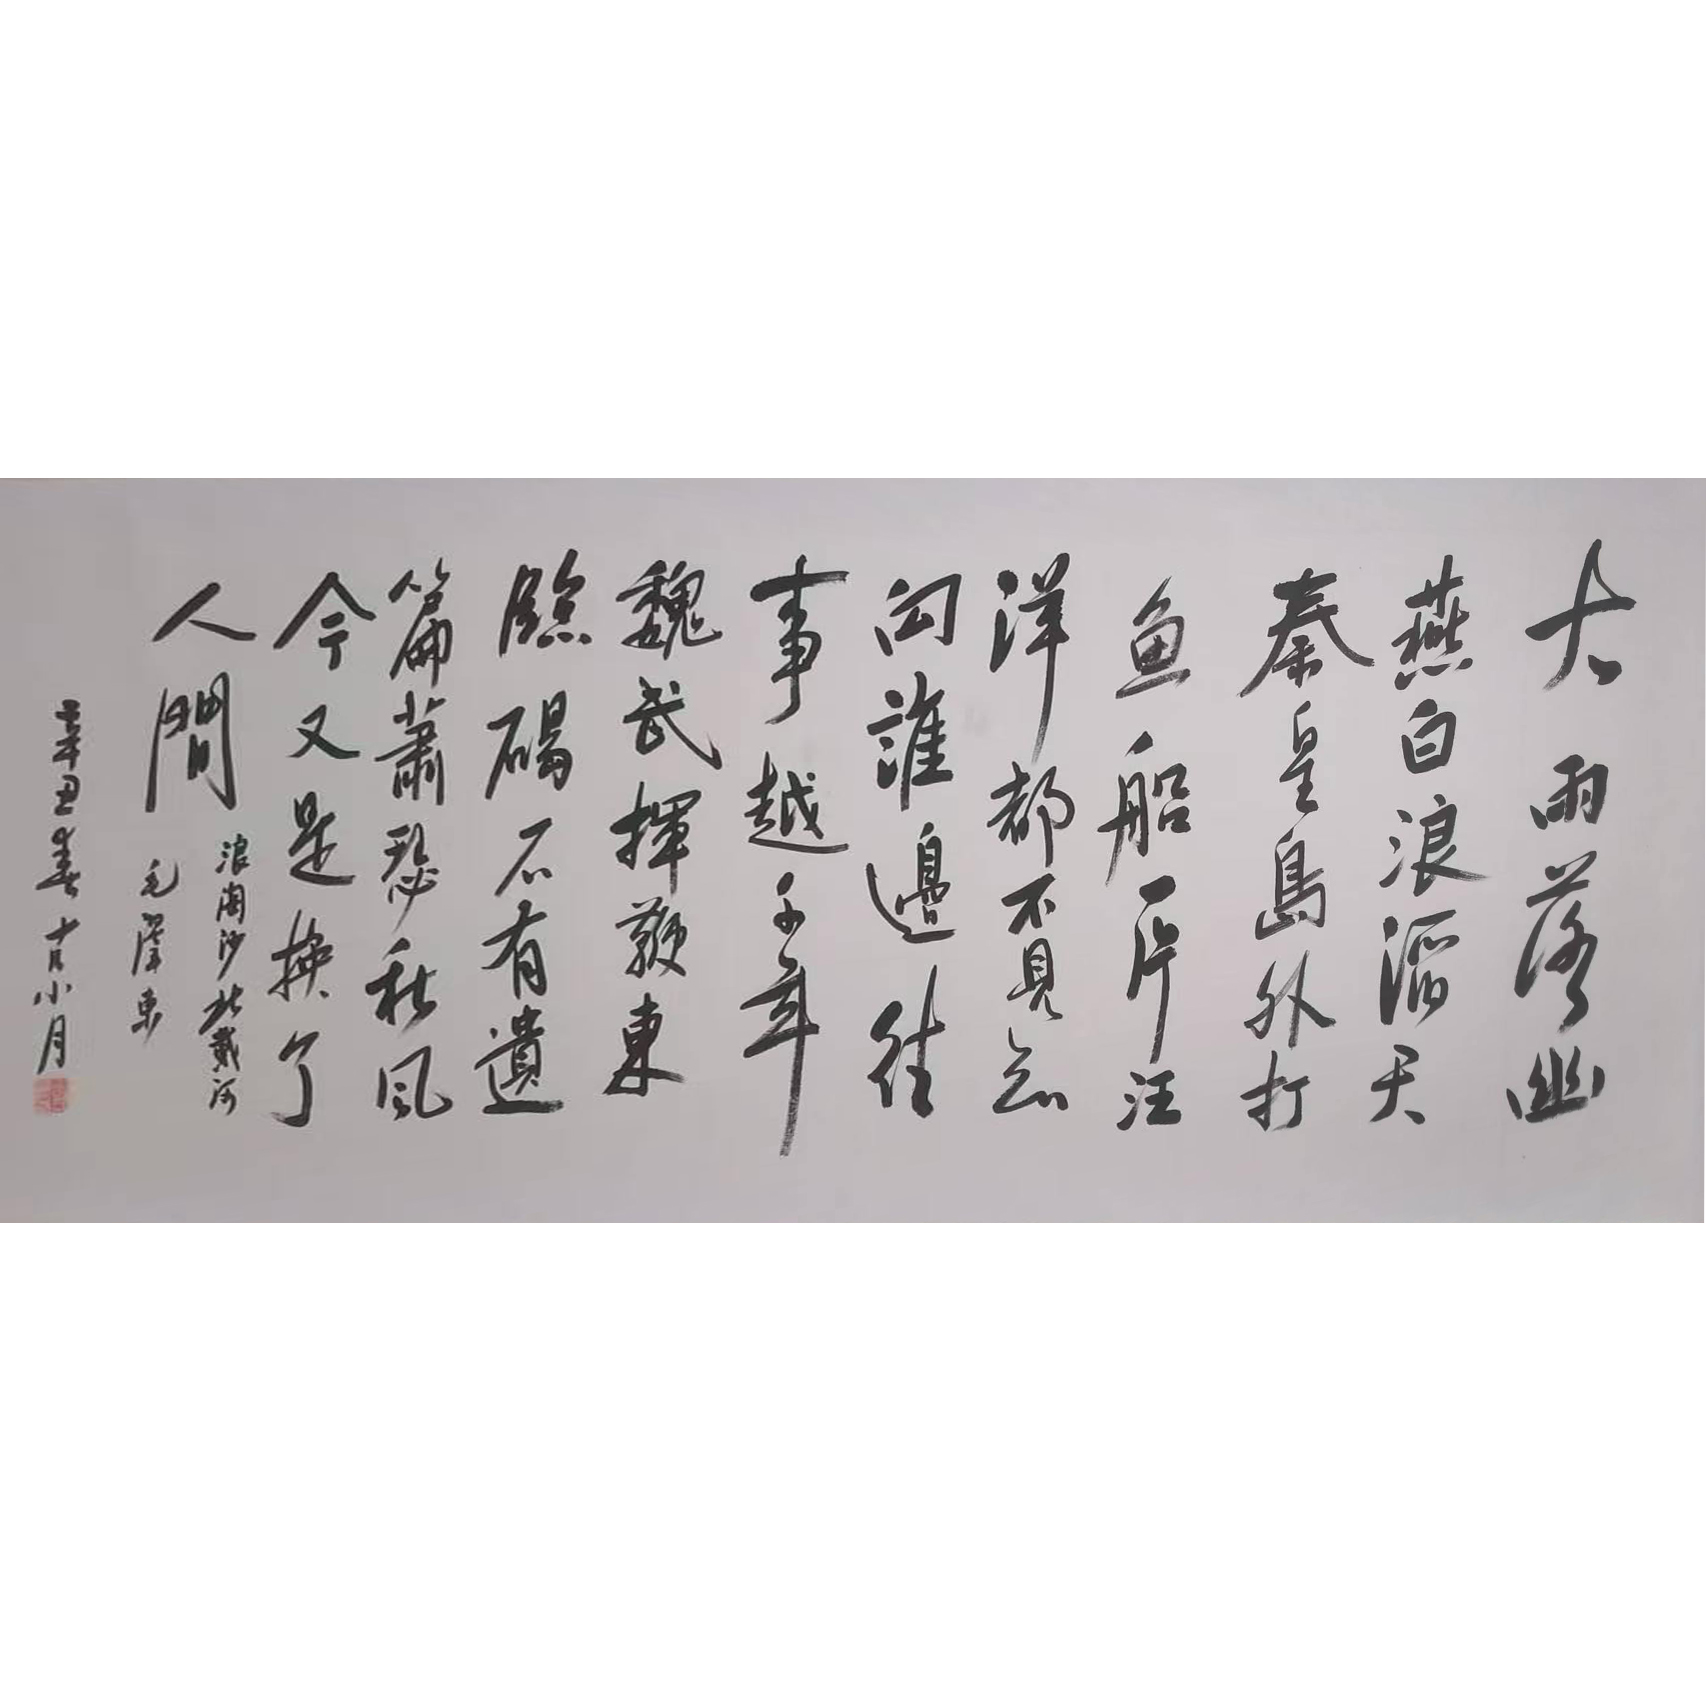 大雨落幽
燕白浪滔天
秦皇島外打
鱼船一片汪
洋都不見知
向誰邊往
事越千年
魏武揮鞭東
臨碣石有遺
篇蕭瑟秋風
今又是換了
人間
浪淘沙北戴河
毛澤東
辛丑春 小月